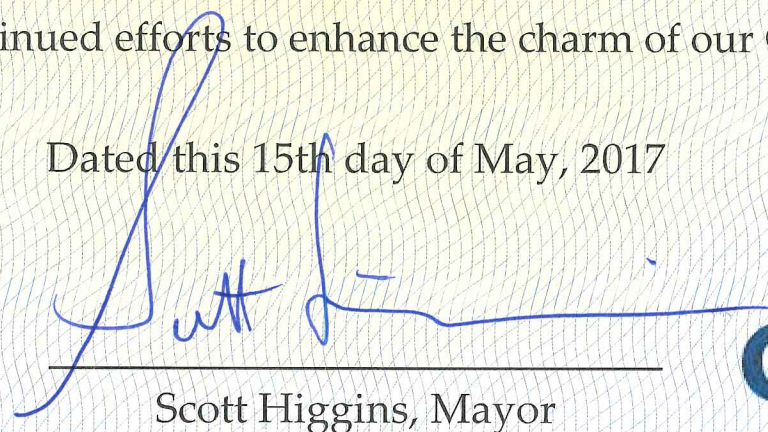 inued efforts to enhance the charm of our
Dated this 15th day of May, 2017
Scott
Scott Higgins, Mayor